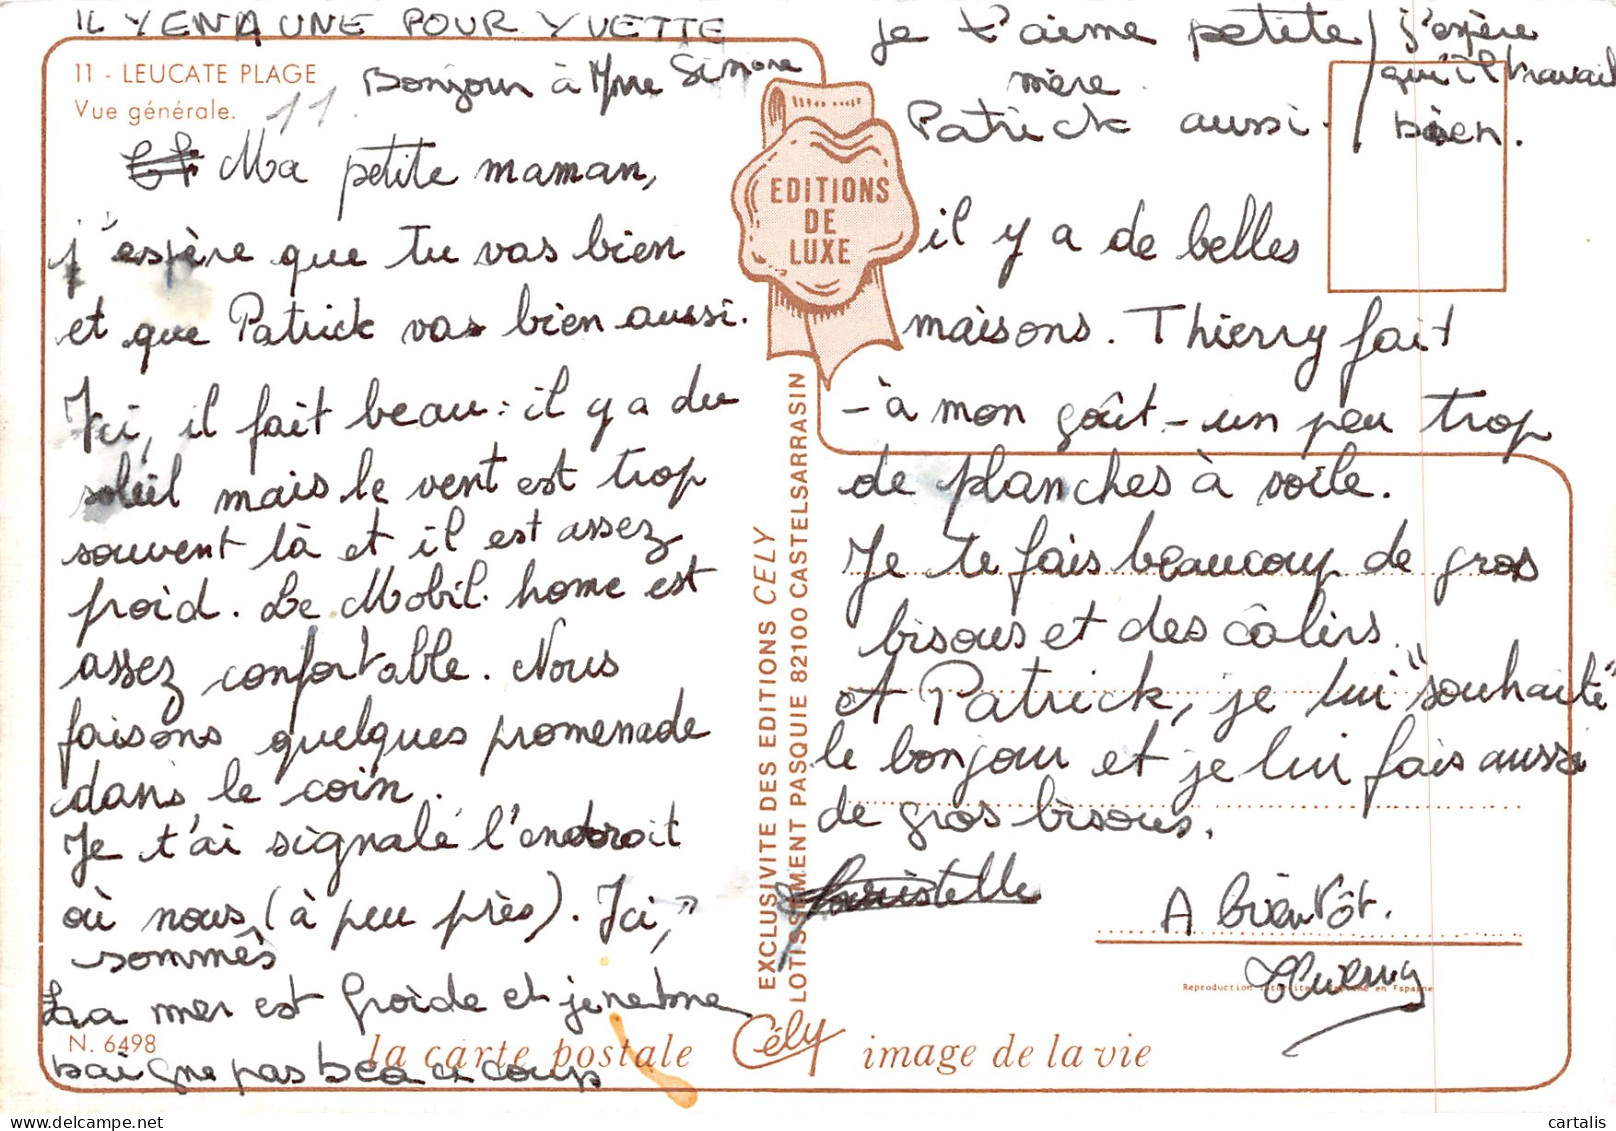 IL Y EN A UNE POUR YVETTE
11 - LEUCATE PLAGE
Vue générale.
11.
Bonjour à Mme Simone
Ma petite maman,
j'espère que tu vas bien
et que Patrick vas bien aussi.
Ici, il fait beau : il y a du
soleil mais le vent est trop
souvent là et il est assez
froid. Le Mobil. home est
assez confortable. Nous
faisons quelques promenade
dans le coin.
Je t'ai signalé l'endroit
où nous (à peu près). Ici,
sommes
La mer est froide et je ne me
baigne pas beaucoup
N. 6498
EDITIONS
DE
LUXE
EXCLUSIVITE DES EDITIONS CELY
LOTISSEMENT PASQUIE 82100 CASTELSARRASIN
je t'aime petite
mère
Patrick aussi.
j'espère
qu'il travail
bien.
il y a de belles
maisons. Thierry fait
- à mon goût - un peu trop
de planches à voile.
Je te fais beaucoup de gros
bisous et des câlins.
A Patrick, je lui "souhaite"
le bonjour et je lui fais aussi
de gros bisous.
A bientôt.
Reproduction en Espagne
la carte postale Cély image de la vie
cartalis